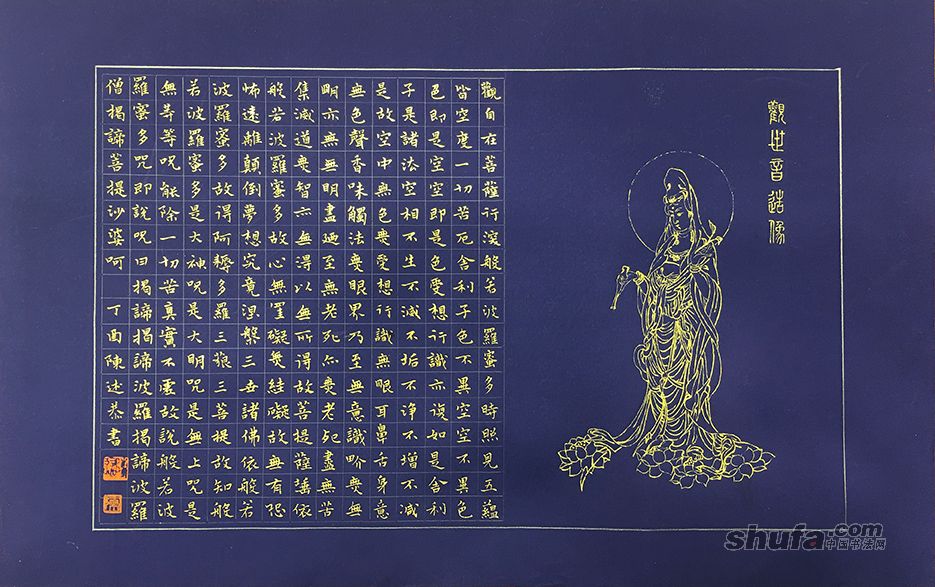 觀世音造像
觀自在菩薩行深般若波羅蜜多時照見五蘊
皆空度一切苦厄舍利子色不異空空不異色
色即是空空即是色受想行識亦復如是舍利
子是諸法空相不生不滅不垢不淨不增不減
是故空中無色無受想行識無眼耳鼻舌身意
無色聲香味觸法無眼界乃至無意識界無無
明亦無無明盡廼至無老死亦無老死盡無苦
集滅道無智亦無得以無所得故菩提薩埵依
般若波羅蜜多故心無罣礙無絓礙故無有恐
怖遠離顛倒夢想究竟涅槃三世諸佛依般若
波羅蜜多故得阿耨多羅三藐三菩提故知般
若波羅蜜多是大神咒是大明咒是無上咒是
無等等咒能除一切苦真實不虛故說般若波
羅蜜多咒即說咒曰揭諦揭諦波羅揭諦波羅
僧揭諦菩提沙婆呵 丁酉陳述恭書
shufa.com
中国书法网